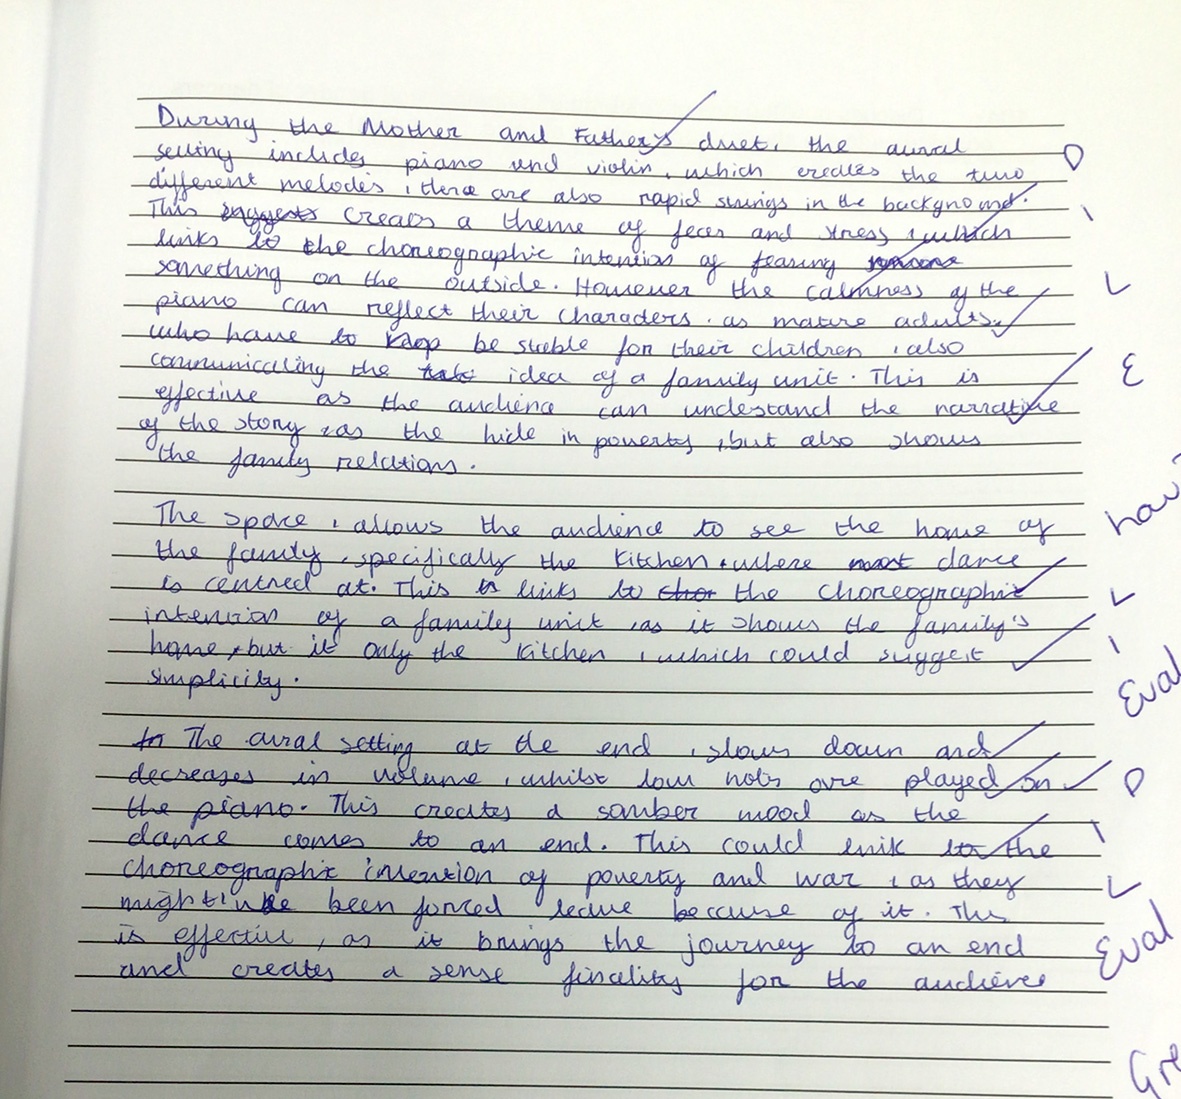 During the Mother and Father's duet, the aural
setting includes piano and violin, which creates the two
different melodes, there are also rapid swings in the background.
This suggests creats a theme of fear and stress, which
links to the choreographic intention of fearing
something on the outside. However the calmness of the
piano can reflect their characters, as mature adults,
who have to keep be stable for their children, also
communicating the idea of a family unit. This is
effective as the audience can undestand the narrative
of the story, as the hide in poverty, but also shows
the family relations.
The space, allows the audience to see the home of
the family, specifically the kitchen, where most dance
is centred at. This is links to the choreographic
intention of a family unit, as it shows the family's
home, but it only the kitchen, which could suggest
simplicity.
In The aural setting at the end, slows down and
decreases in volume, whilst low nots are played on
the piano. This creates a somber mood as the
dance comes to an end. This could link to the
choreographic intention of poverty and war, as they
might've been forced leave because of it. This
is effective, as it brings the journey to an end
and creates a sense finality for the audience
D
I
L
E
L
I
Eval
D
I
L
Eval